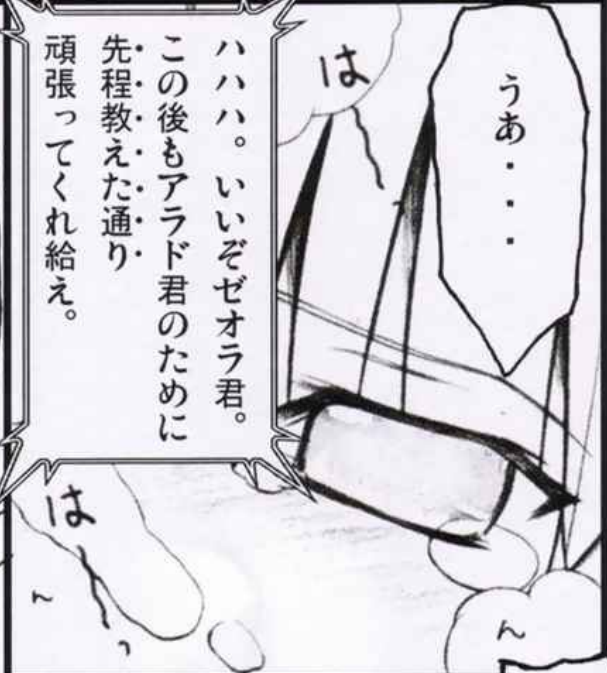 うあ・・・
は
ハハハ。いいぞゼオラ君。
この後もアラド君のために
先程教えた通り
頑張ってくれ給え。
は
ん
っ
ん